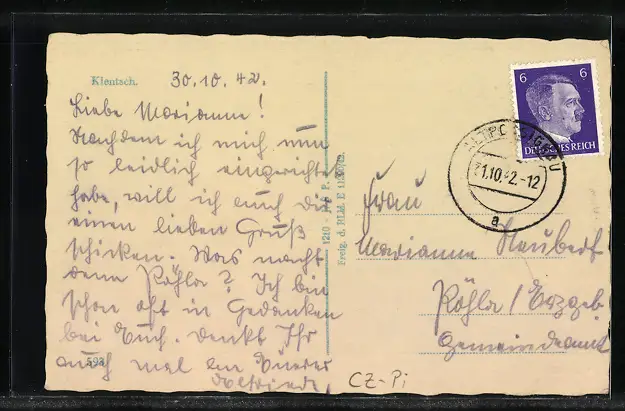 Klentsch.
30.10.42.
Liebe Marianne!
Nachdem ich mich nun
so leidlich eingerichtet
habe, will ich auch dir
einen lieben Gruß
schicken. Was macht
denn Röhla? Ich bin
schon oft in Gedanken
bei Euch. Denkt Ihr
auch mal an
593
1210
Freig. d. RLM. E
6 6
DEUTSCHES REICH
31.10.42.-12
a
Frau
Marianne Neubert
Röhla/Erzgeb.
Gemeindeamt
CZ-Pi